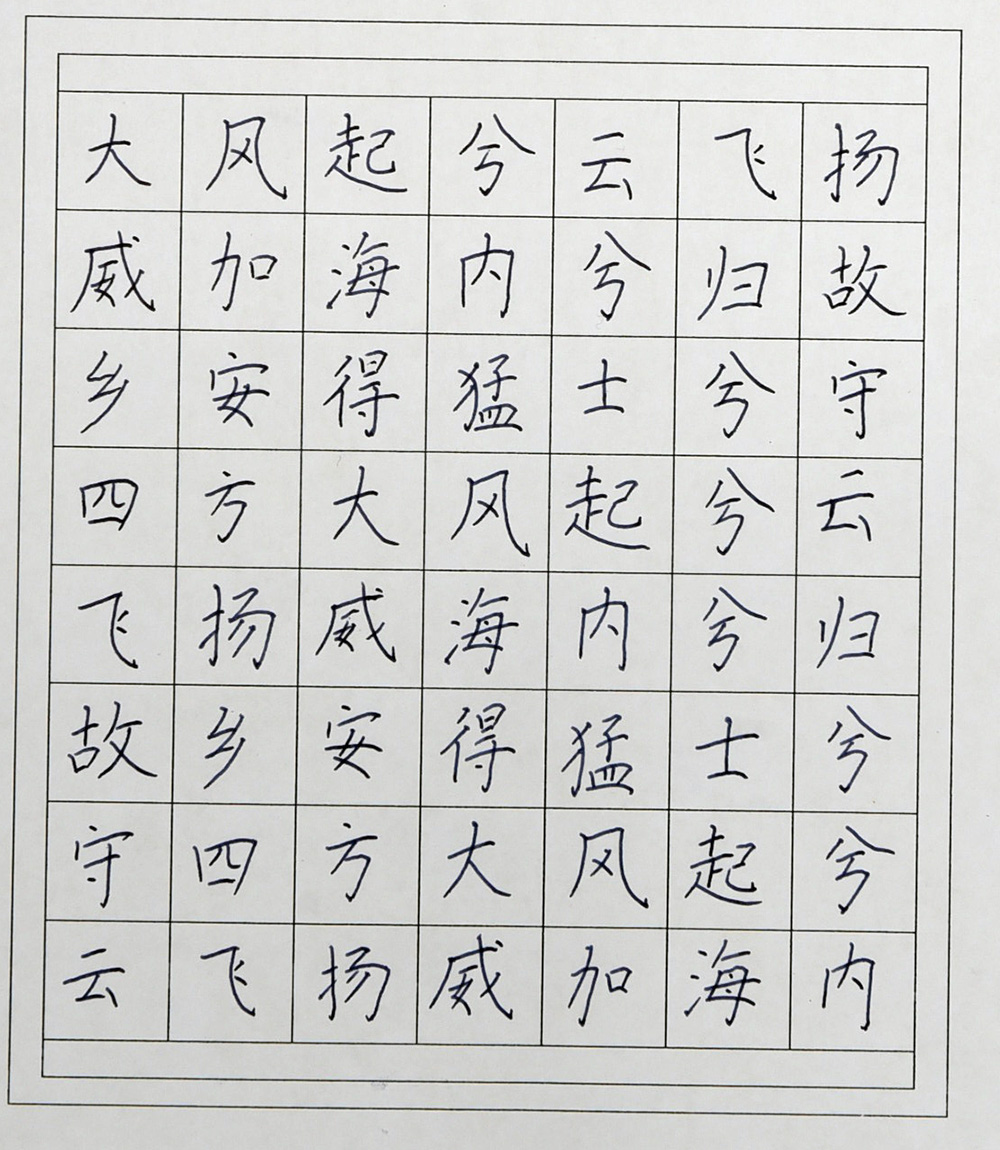 大风起兮云飞扬
威加海内兮归故
乡安得猛士兮守
四方大风起兮云
飞扬威海内兮归
故乡安得猛士兮
守四方大风起兮
云飞扬威加海内